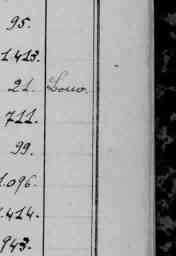 95.
1413.
21. Louo.
711.
99.
1.096.
1.414.
943.